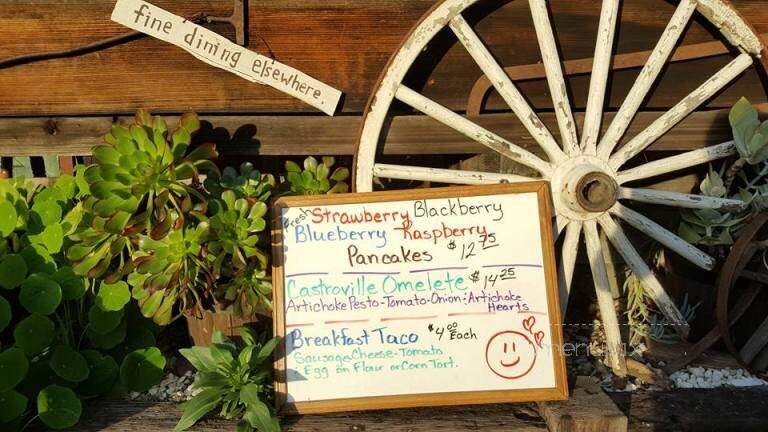 fine dining elsewhere.
Fresh Strawberry Blackberry
Blueberry Raspberry
Pancakes $12.75
Castroville Omelete $14.25
Artichoke Pesto-Tomato-Onion-Artichoke
Hearts
Breakfast Taco $4.00 Each
Sausage Cheese-Tomato
Egg on Flour or Corn Tort.